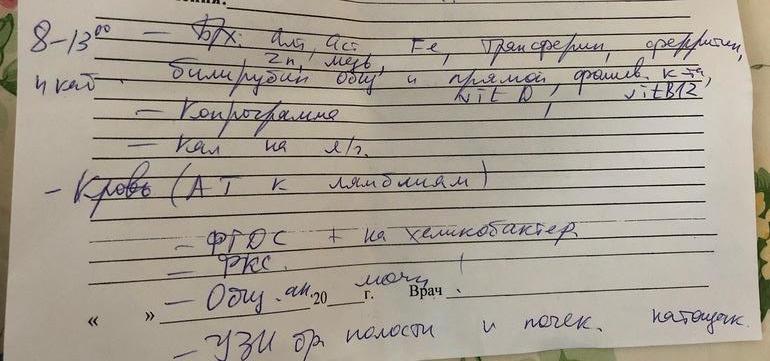 8-13⁰⁰ — Б/х: Алт, Аст, Fe, Трансферин, ферритин,
Zn, медь,
4 каб. билирубин общ и прямой, фолиев. к-та,
vit D, vitB12
— Копрограмма
— Кал на я/г.
— Кровь (АТ к лямблиям)
— ФГДС + на хеликобактер
— ФКС.
— Общ. ан. мочи
« » 20 г. Врач
— УЗИ бр полости и почек. натощак.